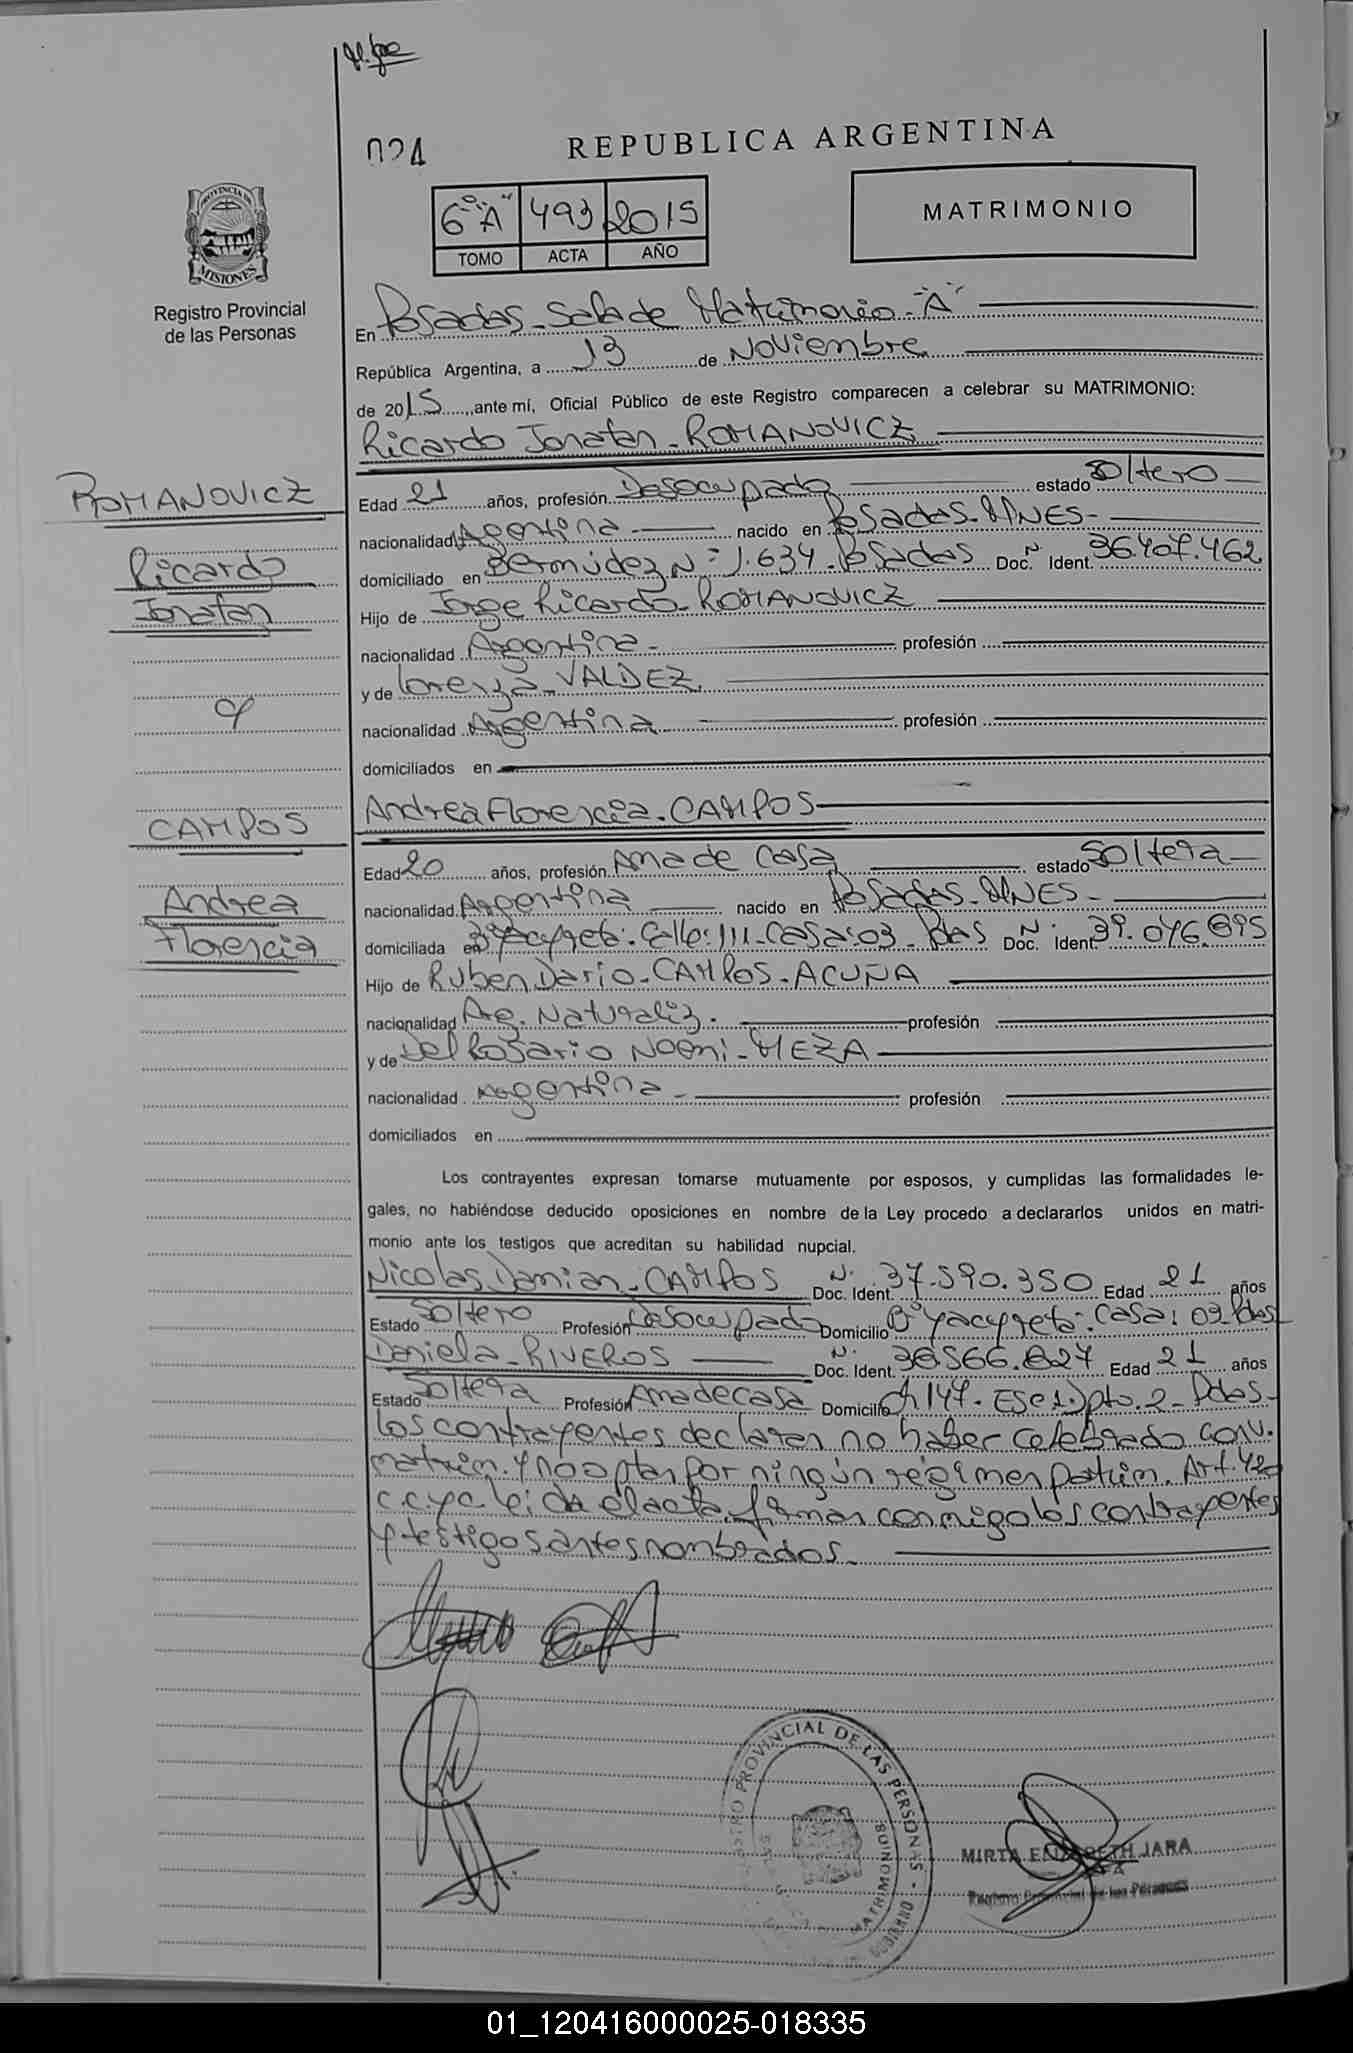 024
REPUBLICA ARGENTINA
PROVINCIA DE
MISIONES
Registro Provincial
de las Personas
6° "A" 493 2015
TOMO ACTA AÑO
MATRIMONIO
En Posadas - Sala de Matrimonio - "A"
República Argentina, a 13 de Noviembre
de 2015, ante mí, Oficial Público de este Registro comparecen a celebrar su MATRIMONIO:
Ricardo Jonatan - ROMANOVICZ
ROMANOVICZ
Ricardo
Jonatan
Edad 21 años, profesión Desocupado estado Soltero
nacionalidad Argentina nacido en Posadas - MNES -
domiciliado en Bermúdez N° 1.634 - Posadas Doc. N° Ident. 36.407.462
Hijo de Jorge Ricardo - ROMANOVICZ
nacionalidad Argentina - profesión
y de Lorenza - VALDEZ
nacionalidad Argentina profesión
domiciliados en
y
CAMPOS
Andrea
Florencia
Andrea Florencia - CAMPOS
Edad 20 años, profesión Ama de Casa estado Soltera
nacionalidad Argentina nacido en Posadas - MNES -
domiciliada en B° Yacyreta - Calle: 111 - Casa: 03 - Pdas Doc. N° Ident. 39.046.895
Hijo de Ruben Dario - CAMPOS - ACUÑA
nacionalidad Arg. Naturaliz. profesión
y de Del Rosario Noemi - MEZA
nacionalidad Argentina - profesión
domiciliados en
Los contrayentes expresan tomarse mutuamente por esposos, y cumplidas las formalidades le-
gales, no habiéndose deducido oposiciones en nombre de la Ley procedo a declararlos unidos en matri-
monio ante los testigos que acreditan su habilidad nupcial.
Nicolas Damian - CAMPOS Doc. N° Ident. 37.590.350 Edad 21 años
Estado Soltero Profesión Desocupado Domicilio B° Yacyreta - Casa: 02 Pdas
Daniela - RIVEROS Doc. N° Ident. 38566.827 Edad 21 años
Estado Soltera Profesión Ama de casa Domicilio Ch 147 - Esc 1. Dpto. 2 - Pdas -
Los contrayentes declaran no haber celebrado conv.
matrim. y no optan por ningún régimen patrim. Art. 420
C.C.yC. leida el acta, firman conmigo los contrayentes
y testigos antes nombrados.
REGISTRO PROVINCIAL DE LAS PERSONAS
MATRIMONIOS
MIRTA ELIZABETH JARA
JEFA
Registro Provincial de las Personas
01_120416000025-018335